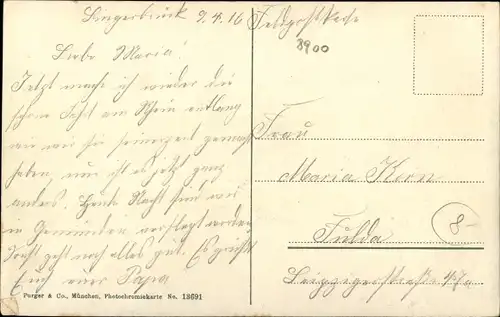 Bingerbrück 9.4.16
Feldpostkarte
8900
Liebe Maria!
Jetzt mache ich wieder die
schöne Fahrt am Rhein entlang
wie wir sie seinerzeit gemacht
haben, nur ist es jetzt ganz
anders. Heute Nacht sind wir
in Gemünden verpflegt worden
sonst geht noch alles gut. Es grüßt
Euch euer Papa
Frau
Maria Kern
Fulda
Leipzigerstraße 47a
8-
Purger & Co., München, Photochromiekarte No. 13691